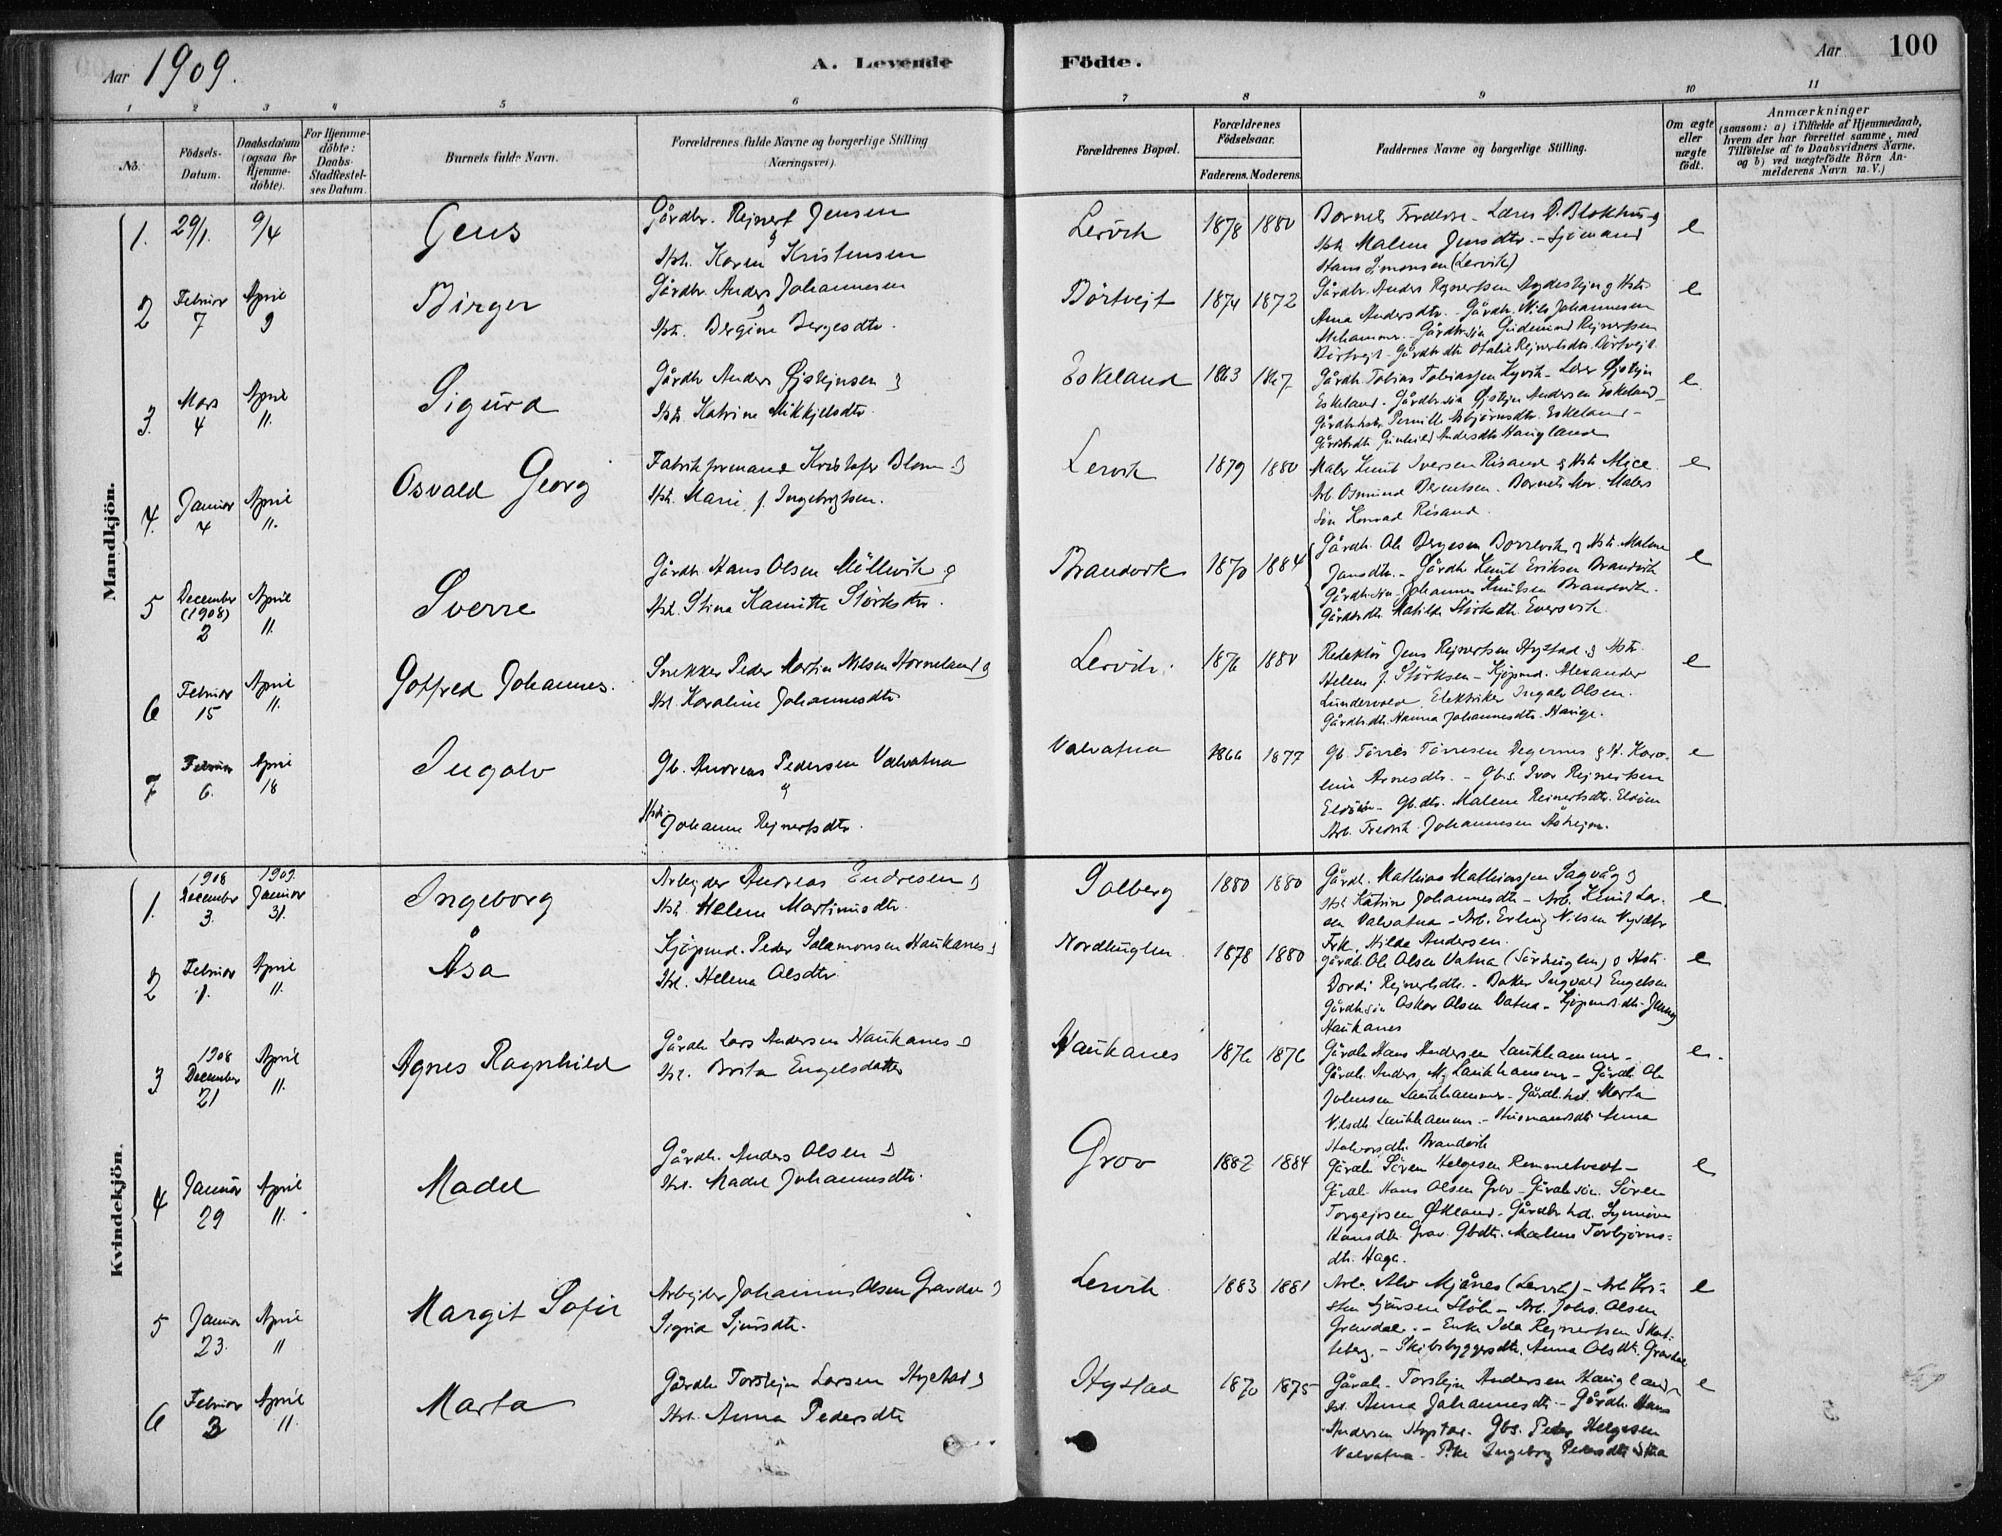 Aar 1909.
A. Levende Födte.
Aar 100
1 2 3 4 5 6 7 8 9 10 11
No.
Födsels-Datum.
Daabsdatum (ogsaa for Hjemme-döbte).
For Hjemme-döbte: Daabs-Stadfæstel-ses Datum.
Barnets fulde Navn.
Forældrenes fulde Navne og borgerlige Stilling (Næringsvei).
Forældrenes Bopæl.
Forældrenes Födselsaar.
Faderens. Moderens.
Faddernes Navne og borgerlige Stilling.
Om ægte eller uægte födt.
Anmærkninger
(saasom: a) i Tilfælde af Hjemmedaab, hvem der har forrettet samme, med Tilföielse af to Daabsvidners Navne, og b) ved uægtefödte Börn An-melderens Navn m. V.)
Mandkjön.
1. 29/1. 9/4 Jens
Gårdbr. Rejnert Jensen
og
Hst. Karen Kristensen
Lervik 1878 1880
Barnets Forældre - Lærer D. Blokhus og
Hst. Malene Jensdtr. - Sjömand
Hans Simonsen (Lervik)
e
2 Februar 7 April 9 Birger
Gårdbr. Anders Johannesen
og
Hst. Bergine Bergesdtr.
Börtvejt 1874 1872
Gårdbr. Anders Rejnertsen og Hst.
Anna Andersdtr. - Gårdbr. Nils Johannesen
- Gårdbr.sön Gudmund Rejnertsen
Börtvejt - Gårdbr.dtr. Otalie Rejnertsdtr. Börtvejt.
e
3. Mars 4 April 11. Sigurd
Gårdbr. Anders Øistejnsen og
Hst. Katrine Mikkjelsdtr.
Eskeland 1863 1867
Gårdbr. Tobias Tobiassen - Lærer Øistejn
Eskeland - Gårdbr.sön Øistejn Andersen Eskeland -
Gårdbr.hstr. Pernille Asbjörnsdtr. Eskeland -
Gårdbr.dtr. Gunhild Andersdtr. Haugland
e
4. Januar 4 April 11. Osvald Georg
Fabrikformand Kristofer Blom og
Hst. Marie, f. Ingebrigtsen.
Lervik 1879 1880
Maler Knut Iversen Risand og Hst. Alice.
Arb. Osmund Berentsen. Barnets Mor. Malers
sön Konrad Risand.
e
5 December (1908) 2 April 11. Sverre
Gårdbr. Hans Olsen Möllevik og
Hst. Stina Kamitte Störksdtr.
Brandvik 1870 1884
Gårdbr. Ole Bergesen Borrevik og Hst. Malene
Jansdtr. - Gårdbr. Knut Eriksen Brandvik
Gårdbr.sön Johannes Knutsen Brandvik.
Gårdbr.dtr. Matilde Störksdtr. Eversvik.
e
6 Februar 15 April 11. Gotfred Johannes.
Snekker Peder Martin Nilsen Horneland og
Hst. Karoline Johannesdtr.
Lervik. 1876 1880
Redaktör Jens Rejnertsen Hystad og Hst.
Helene f. Störksen - Kjöpmd. Alexander
Lundervold. Elektriker Ingolv Olsen.
Gårdbr.dtr. Hanna Johannesdtr. Hauge.
e
7 Februar 6. April 18 Ingolv
Gb. Andreas Pedersen Valvatna
og
Hst. Johanne Rejnertsdtr.
Valvatna 1866 1877
Gb. Törres Törresen Degernes og H. Karo-
line Arnesdtr. - Gb.s. Ivar Rejnertsen
Eldöen - Gb.dtr. Malene Rejnertsdtr. Eldöen
Arb. Fredrik Johannesen
e
Kvindekjön.
1. 1908 December 3. 1909 Januar 31. Ingeborg
Arbejder Andreas Endresen og
Hst. Helene Martinusdtr.
Solberg 1880 1880
Gårdbr. Mathias Mathiassen Sagvåg og
Hst. Katrine Johannesdtr. - Arb. Knut Lar-
sen Valvatna - Arb. Erling Nilsen
Frk. Hilda Andersen.
e.
2 Februar 1. April 11. Åsa
Kjöpmd. Peder Salamonsen Haukanes og
Hst. Helena Olsdtr.
Nordhuglen 1878 1880
Gårdbr. Ole Olsen Vatna (Sörhuglen) og Hst.
Dordi Rejnertsdtr. - Baker Ingvald Engelsen
Gårdbr.sön Oskar Olsen Vatna - Kjöpmds.dtr. Jenny
Haukanes
e
3 1908 December 21 April 11. Agnes Ragnhild
Gårdbr. Lars Andersen Haukanes og
Hst. Brita Engelsdatter
Haukanes 1876 1876
Gårdbr. Hans Andersen Laukhammer -
Gårdbr. Anders Laukhammer - Gårdbr. Ole
Johnsen Laukhammer - Gårdbr.hst. Marta
Nilsdtr. Laukhammer - Husmandsdtr. Anna
Halvorsdtr. Brandvik
e.
4 Januar 29 April 11. Madel
Gårdbr. Anders Olsen og
Hst. Madel Johannesdtr.
Grov 1882 1884
Gårdbr. Sören Helgesen Remmetvedt -
Gårdbr. Hans Olsen Grov - Gårdbr.sön. Sören
Torgejrsen Økland - Gårdbr.hst. Synnöve
Hansdtr. Grov. Gbdtr. Malene Torbjörns-
dtr. Haga.
e
5 Januar 23. April 11 Margit Sofie
Arbejder Johannes Olsen Gravdal og
Sigrid Sjursdtr.
Lervik 1883 1881
Arb. Alv Mjånes (Lervik) - Arb. Kri-
sten Sjursen Stöle - Arb. Johs. Olsen
Gravdal. - Enke Ida Rejnertsen Skart-
teberg. - Skibsbyggersdtr. Anna Olsdtr. Gravdal
e
6 Februar 3 April 11. Marta
Gårdbr. Torstejn Larsen Hystad og
Hst. Anna Pedersdtr.
Hystad 1870 1875
Gårdbr. Torstejn Andersen Haugland og
Hst. Anna Johannesdtr. - Gårdbr. Hans
Andersen Hystad. Gbs. Peder Helgesen
Valvatna - Pike Ingeborg Pedersdtr.
e